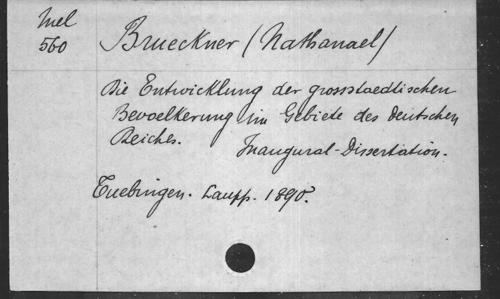 Mel
560
Brueckner (Nathanael)
Die Entwicklung der grossstaedtischen
Bevoelkerung im Gebiete des Deutschen
Reiches. Inaugural-Dissertation.
Tuebingen. Laupp. 1890.